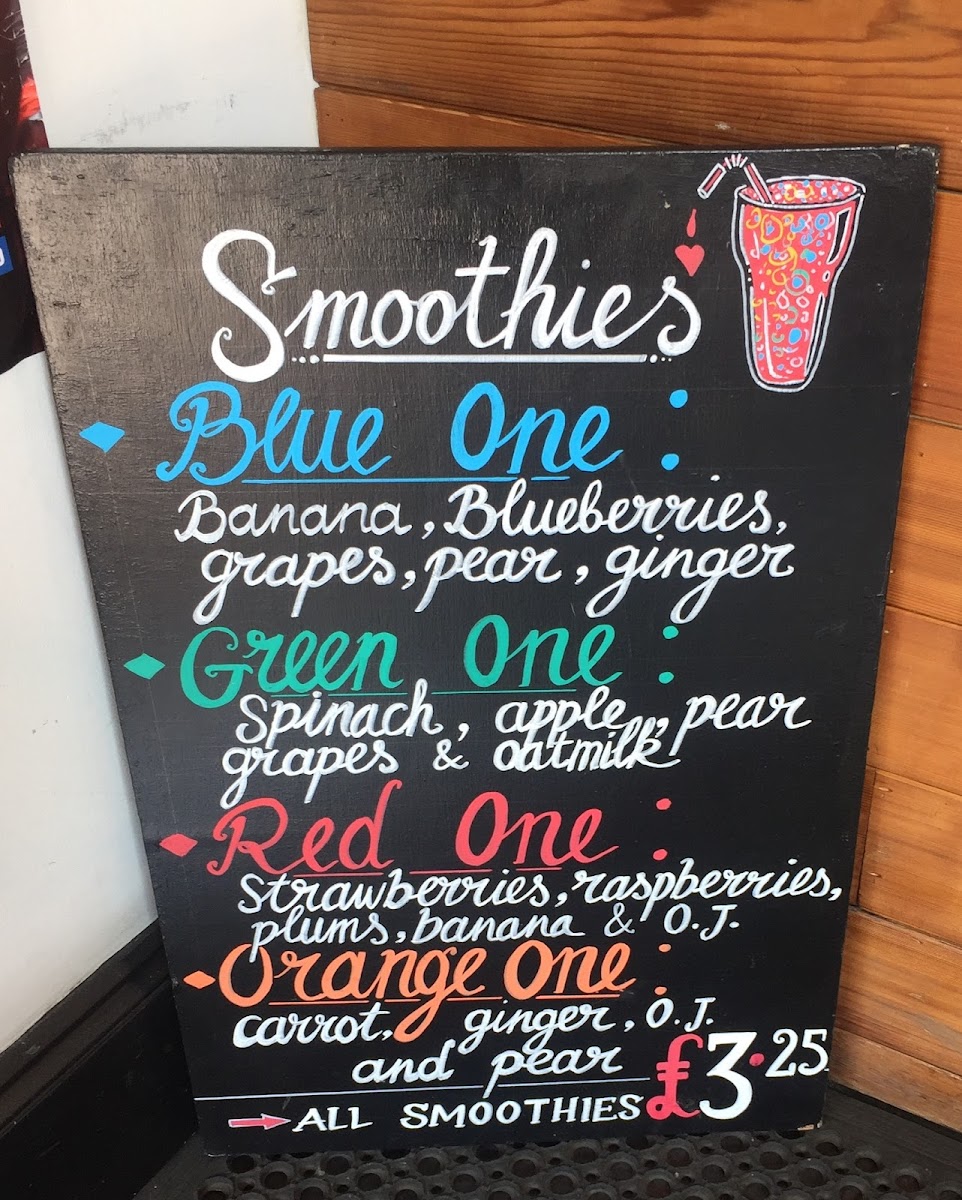 Smoothies
Blue One :
Banana, Blueberries,
grapes, pear, ginger
Green One :
Spinach, apple, pear
grapes & oatmilk
Red One :
Strawberries, raspberries,
plums, banana & O.J.
Orange One :
carrot, ginger, O.J.
and pear
ALL SMOOTHIES £3.25